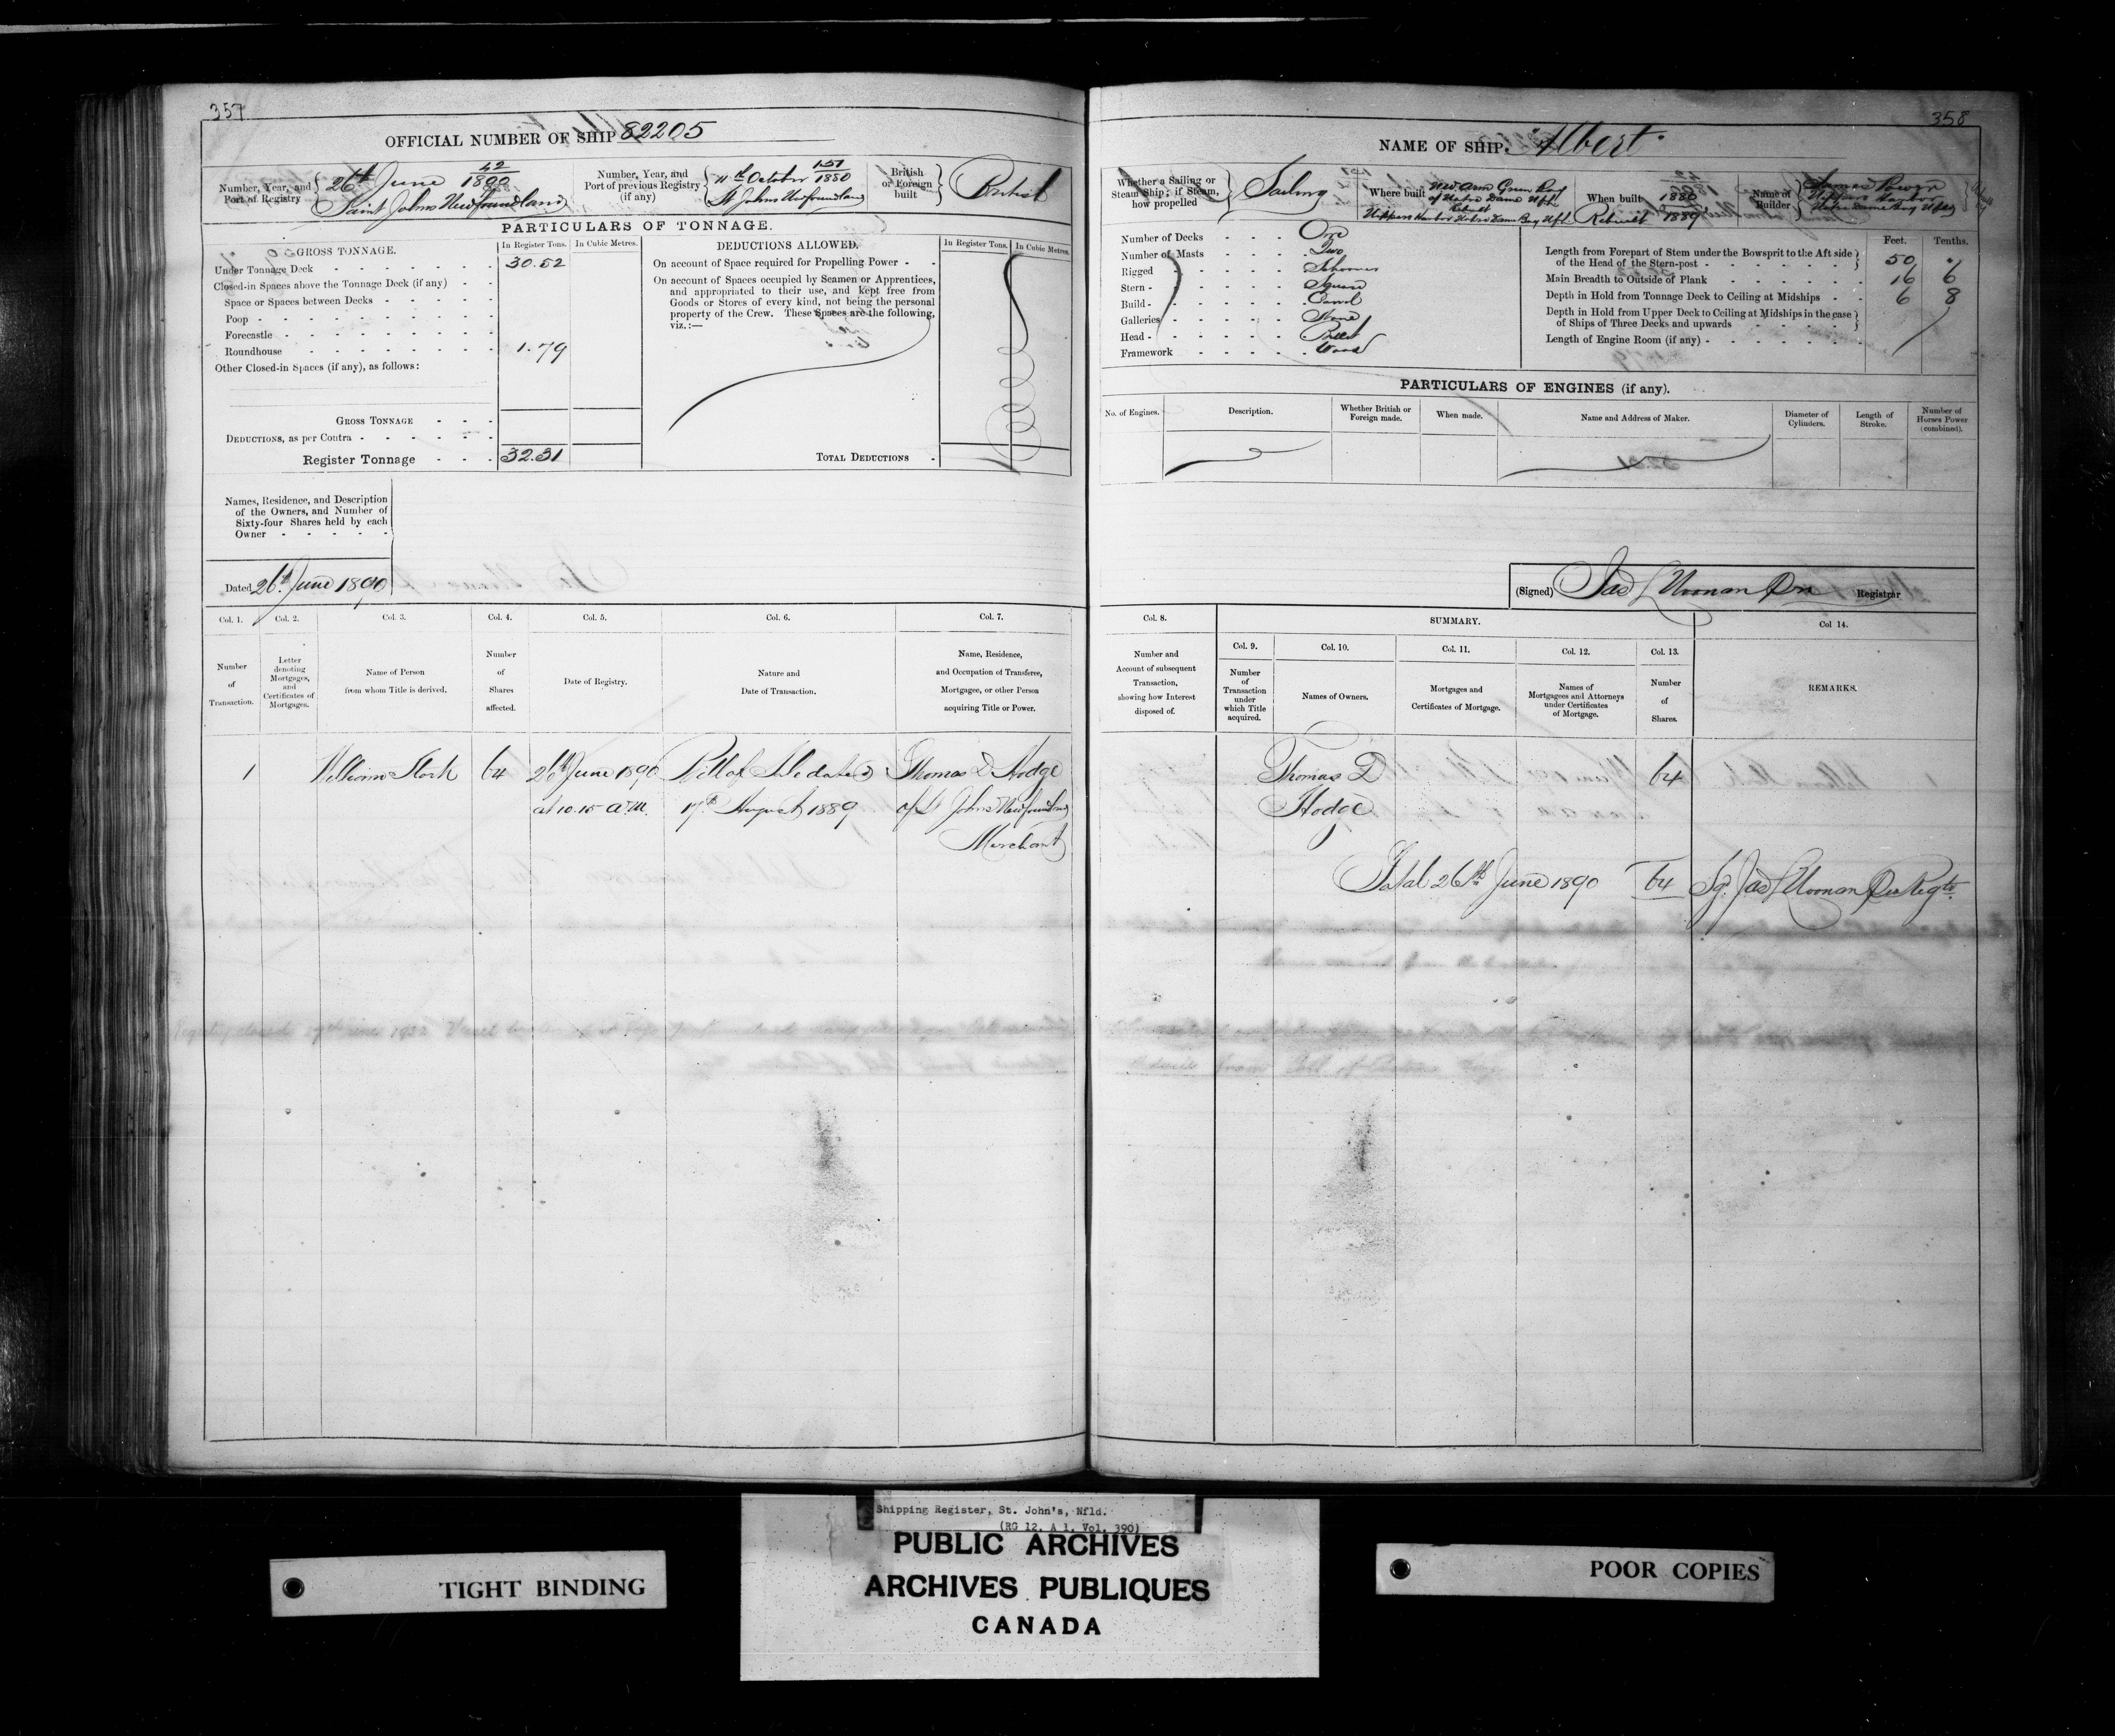 357
OFFICIAL NUMBER OF SHIP 82205
Number, Year, and Port of Registry
26th June 42/1890
Saint Johns Newfoundland
Number, Year, and Port of previous Registry (if any)
11th October 151/1880
St Johns Newfoundland
British or Foreign built
British
PARTICULARS OF TONNAGE.
GROSS TONNAGE.
In Register Tons. In Cubic Metres.
Under Tonnage Deck 30.52
Closed-in Spaces above the Tonnage Deck (if any)
Space or Spaces between Decks
Poop
Forecastle
Roundhouse 1.79
Other Closed-in Spaces (if any), as follows:
GROSS TONNAGE
DEDUCTIONS, as per Contra
Register Tonnage 32.31
DEDUCTIONS ALLOWED.
In Register Tons. In Cubic Metres.
On account of Space required for Propelling Power
On account of Spaces occupied by Seamen or Apprentices,
and appropriated to their use, and kept free from
Goods or Stores of every kind, not being the personal
property of the Crew. These Spaces are the following,
viz.:—
TOTAL DEDUCTIONS
Names, Residence, and Description
of the Owners, and Number of
Sixty-four Shares held by each
Owner
Dated 26th June 1890
Col. 1. Col. 2. Col. 3. Col. 4. Col. 5. Col. 6. Col. 7.
Number of Transaction.
Letter denoting Mortgages, and Certificates of Mortgages.
Name of Person from whom Title is derived.
Number of Shares affected.
Date of Registry.
Nature and Date of Transaction.
Name, Residence, and Occupation of Transferee, Mortgagee, or other Person acquiring Title or Power.
1 William Stork 64 26th June 1890 Bill of Sale dated Thomas D Hodge
at 10.15 a.m. 17th August 1889 of St Johns Newfoundland
Merchant
358
NAME OF SHIP. "Albert"
Whether a Sailing or Steam Ship; if Steam, how propelled
Sailing
Where built
New Arm Green Bay
of Notre Dame Nfld
Rebuilt
Nippers Harbor Notre Dame Bay Nfld
When built 1880
Rebuilt 1889
Name of Builder
Power
Nippers Harbor
Notre Dame Bay Nfld
Number of Decks One
Number of Masts Two
Rigged Schooner
Stern Square
Build Carvel
Galleries None
Head Billet
Framework Wood
Feet. Tenths.
Length from Forepart of Stem under the Bowsprit to the Aft side
of the Head of the Stern-post 50 .
Main Breadth to Outside of Plank 16 6
Depth in Hold from Tonnage Deck to Ceiling at Midships 6 8
Depth in Hold from Upper Deck to Ceiling at Midships in the case
of Ships of Three Decks and upwards
Length of Engine Room (if any)
PARTICULARS OF ENGINES (if any).
No. of Engines. Description. Whether British or Foreign made. When made. Name and Address of Maker. Diameter of Cylinders. Length of Stroke. Number of Horses Power (combined).
(Signed) Jas L Noonan Registrar
Col. 8. SUMMARY. Col 14.
Col. 9. Col. 10. Col. 11. Col. 12. Col. 13.
Number and Account of subsequent Transaction, showing how Interest disposed of.
Number of Transaction under which Title acquired.
Names of Owners.
Mortgages and Certificates of Mortgage.
Names of Mortgagees and Attorneys under Certificates of Mortgage.
Number of Shares.
REMARKS.
Thomas D 64
Hodge
Total 26th June 1890 64 Sg. Jas L Noonan
Shipping Register, St. John's, Nfld.
(RG 12, A 1, Vol. 390)
PUBLIC ARCHIVES
ARCHIVES PUBLIQUES
CANADA
TIGHT BINDING
POOR COPIES